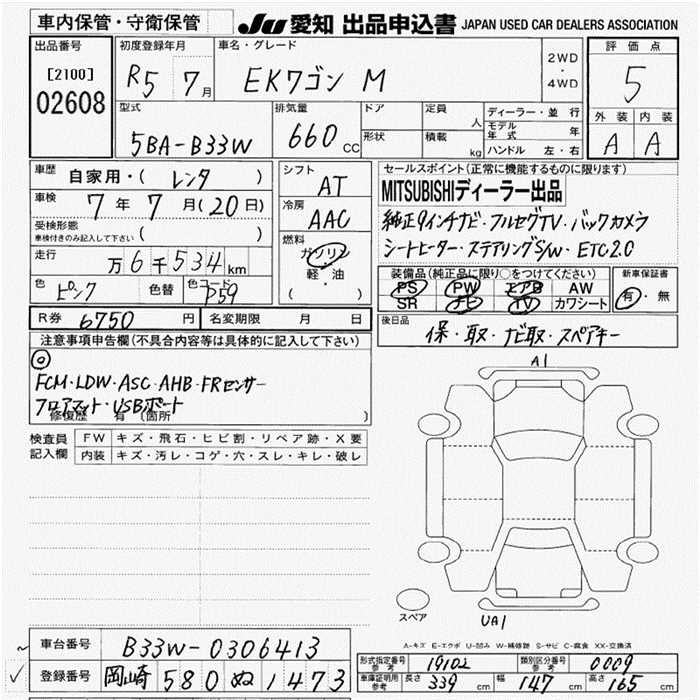 車内保管・守衛保管
JU 愛知 出品申込書 JAPAN USED CAR DEALERS ASSOCIATION
出品番号
[2100]
02608
初度登録年月
R5 7月
車名・グレード
EKワゴン M
2WD・4WD
評価点
5
外装 内装
A A
型式
5BA-B33W
排気量
660 CC
ドア
形状
定員 人
積載 kg
ディーラー・並行
モデル年式 年
ハンドル 左・右
車歴
自家用・( レンタ )
車検
7年7月(20日)
受検形態
車検付きのみ記入して下さい ( )
走行
万6千534km
色
ピンク
色替
色コード
P59
シフト
AT
冷房
AAC
燃料
ガソリン
軽・油
( )
セールスポイント(正常に機能するものに限ります)
MITSUBISHIディーラー出品
純正9インチナビ・フルセグTV・バックカメラ
シートヒーター・ステアリングS/W・ETC2.0
装備品(純正品に限り○をつけてください)
PS PW エアB AW
SR ナビ TV カワシート
新車保証書
有・無
R券 6750円
名変期限 月 日
後日品
保・取・ナビ取・スペアキー
注意事項申告欄(不具合内容等は具体的に記入して下さい)
◎
FCM・LDW・ASC・AHB・FRセンサー
フロアマット・USBポート
修復歴 有 (箇所 )
検査員記入欄
FW キズ・飛石・ヒビ割・リペア跡・X要
内装 キズ・汚レ・コゲ・穴・スレ・キレ・破レ
A1
スペア
UA1
A-キズ E-エクボ U-凹み W-補修跡 S-サビ C-腐食 XX-交換済
車台番号 B33W-0306413
登録番号 岡崎 580 ぬ 1473
形式指定番号 参考 19102
類別区分番号 参考 0009
車庫証明用 参考 長さ 339 cm 幅 147 cm 高さ 165 cm